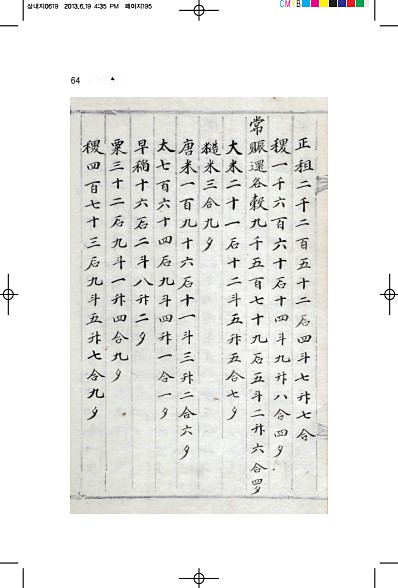 삼내지0619 2013.6.19 4:35 PM 페이지195
CMYB
64
正租二千二百五十二石四斗七升七合
稷一千六百六十石十四斗九升八合四夕
常賑還各穀九千五百七十九石五斗二升六合四夕
大米二十一石十二斗五升五合七夕
糙米三合九夕
唐米一百九十六石十一斗三升二合六夕
太七百六十四石九斗四升一合一夕
早稻十六石二斗八升二夕
粟三十二石九斗一升四合九夕
稷四百七十三石九斗五升七合九夕